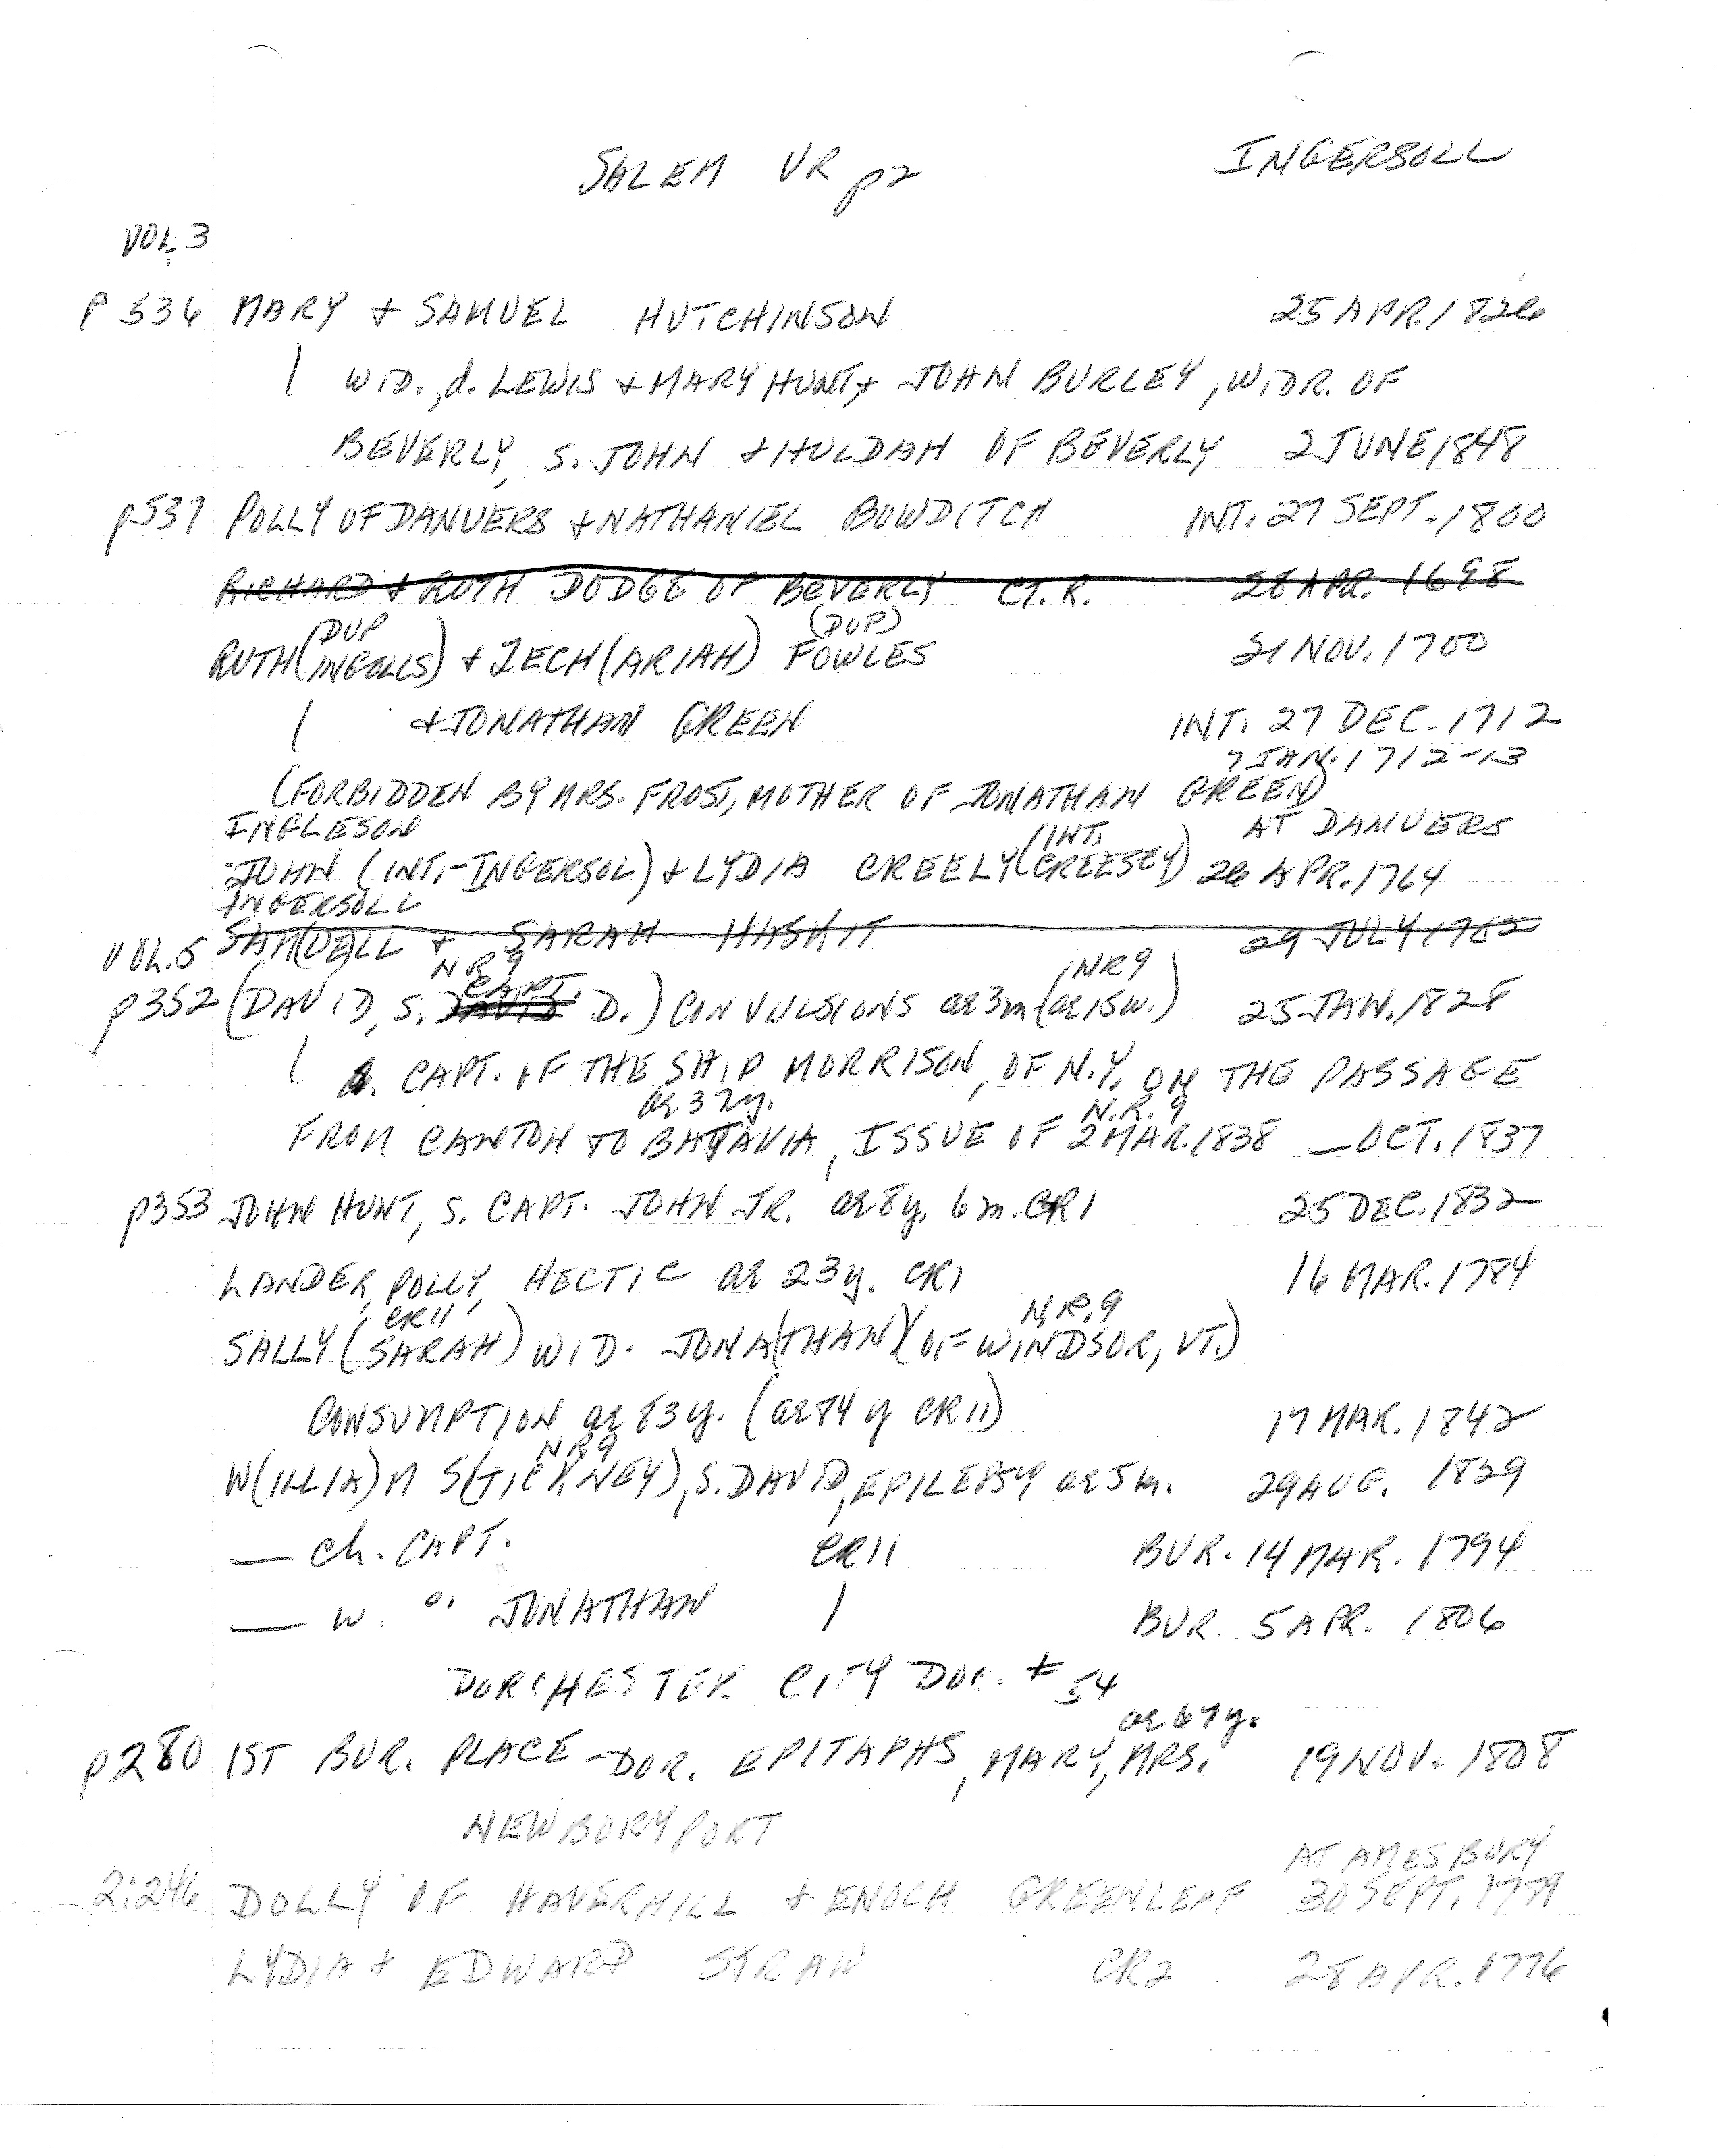 SALEM VR p2 INGERSOLL
VOL. 3
P 536 MARY + SAMUEL HUTCHINSON 25 APR. 1826
| WID., d. LEWIS + MARY HUNT, + JOHN BURLEY, WIDR. OF
BEVERLY, S. JOHN + HULDAH OF BEVERLY 2 JUNE 1848
p537 POLLY OF DANVERS + NATHANIEL BOWDITCH INT. 27 SEPT. 1800
RICHARD + RUTH DODGE OF BEVERLY CT. R. 28 APR. 1698
(DUP (DUP)
RUTH (INGOLLS) + ZECH(ARIAH) FOWLES 21 NOV. 1700
| + JONATHAN GREEN INT. 27 DEC. 1712
7 JAN. 1712-13
(FORBIDDEN BY MRS. FROST, MOTHER OF JONATHAN GREEN)
INGLESON (INT. AT DANVERS
JOHN (INT. - INGERSOL) + LYDIA CREELY (CREESEY) 26 APR. 1764
INGERSOLL
SAM(UE)LL + SARAH HASKIT 29 JULY 1782
VOL. 5 NR9 CAPT. (NR9
p352 (DAVID, S. DAVID D.) CONVULSIONS ae 3m (ae 15w.) 25 JAN. 1828
| CAPT. OF THE SHIP MORRISON, OF N.Y. ON THE PASSAGE
ae 37y. N.R. 9
FROM CANTON TO BATAVIA, ISSUE OF 2 MAR. 1838 — OCT. 1837
p353 JOHN HUNT, S. CAPT. JOHN JR. ae 8y. 6m. CR1 25 DEC. 1832
LANDER, POLLY, HECTIC ae 23y. CR1 16 MAR. 1784
CR11 N.R. 9
SALLY (SARAH) WID. JONA(THAN) (OF WINDSOR, VT.)
CONSUMPTION ae 83y. (ae 84 y CR11) 17 MAR. 1842
NR9
W(ILLIA)M S(TICKNEY), S. DAVID, EPILEPSY ae 5m. 29 AUG. 1829
— ch. CAPT. CR11 BUR. 14 MAR. 1794
— w. " JONATHAN | BUR. 5 APR. 1806
DORCHESTER CITY DOC. # 54
ae 67y.
p280 1ST BUR. PLACE - DOR. EPITAPHS, MARY, MRS. 19 NOV. 1808
NEWBURYPORT
AT AMESBURY
2:246 DOLLY OF HAVERHILL + ENOCH GREENLEAF 30 SEPT. 1779
LYDIA + EDWARD STRAW CR2 28 APR. 1776